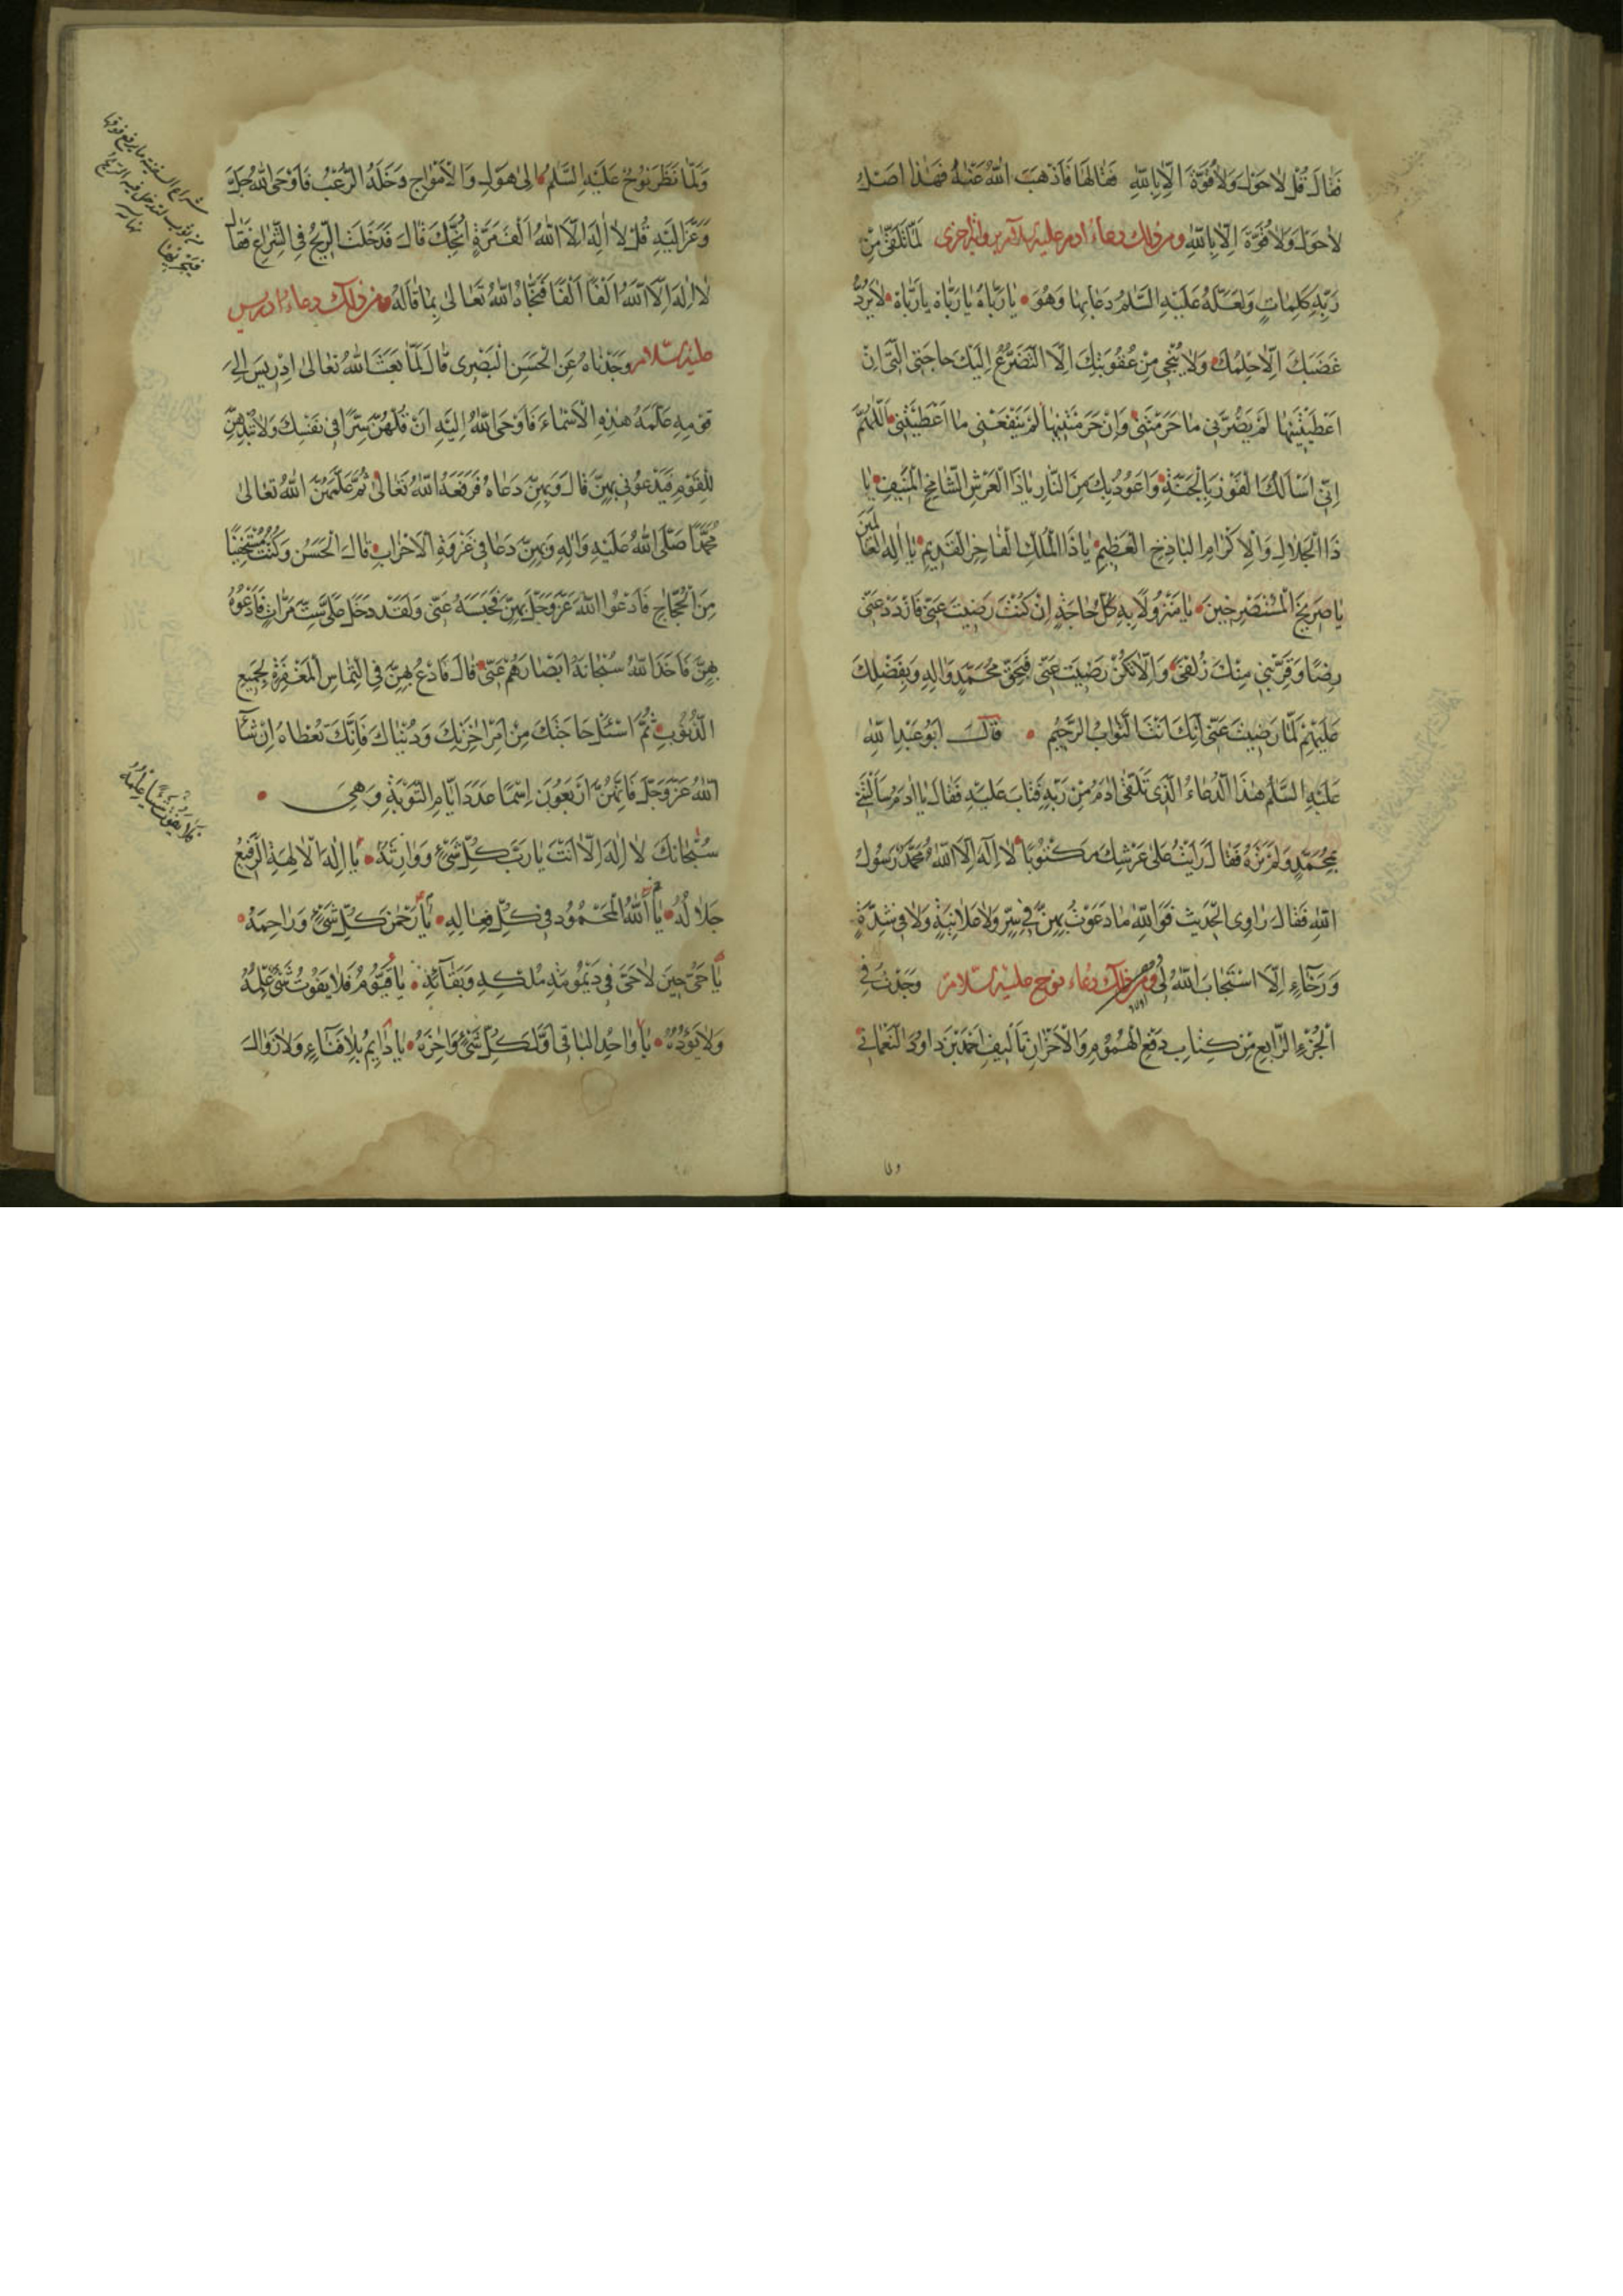 فَقالَ قُلْ لاحَوْلَ وَلاقُوَّةَ اِلّابِاللّهِ فَقالَهَا فَاَذْهَبَ اللّهُ عَنْهُ فَهٰذا اَصْلُ
لاحَوْلَ وَلاقُوَّةَ اِلّابِاللّهِ ومن ذلك دعاء ادم عليه السلام برواية اخرى لَمّا تَلَقّىٰ مِنْ
رَبِّهِ كَلِماتٍ وَلَعَلَّهُ عَلَيْهِ السَّلمُ دَعا بِها وَهُوَ يارَبّاهُ يارَبّاهُ يارَبّاهُ لايَرُدُّ
غَضَبَكَ اِلّاحِلْمُكَ وَلايُنْجي مِنْ عُقُوبَتِكَ اِلَّا التَّضَرُّعُ اِلَيْكَ حاجَتِيَ الَّتي اِنْ
اَعْطَيْتَنيها لَمْ يَضُرَّني ما حَرَمْتَني وَاِنْ حَرَمْتَنيها لَمْ يَنْفَعْني ما اَعْطَيْتَني اَللّهُمَّ
اِنّي اَسْاَلُكَ الْفَوْزَ بِالْجَنَّةِ وَاَعُوذُ بِكَ مِنَ النّارِ ياذَا الْعَرْشِ الشّامِخِ الْمُنيفِ يا
ذَا الْجَلالِ وَالْاِكْرامِ الْباذِخِ الْعَظيمِ ياذَا الْمُلْكِ الْفاخِرِ الْقَديمِ يا اِلهَ الْعالَمينَ
ياصَريخَ الْمُسْتَصْرِخينَ يامَنْزُولًا بِهِ كُلُّ حاجَةٍ اِنْ كُنْتَ رَضيتَ عَنّي فَازْدَدْ عَنّي
رِضًا وَقَرِّبْني مِنْكَ زُلْفىٰ وَاِلّا تَكُنْ رَضيتَ عَنّي فَبِحَقِّ مُحَمَّدٍ وَالِهِ وَبِفَضْلِكَ
عَلَيْهِمْ لَمّا رَضيتَ عَنّي اِنَّكَ اَنْتَ التَّوّابُ الرَّحيمُ قالَ اَبُوعَبْدِاللّهِ
عَلَيْهِ السَّلمُ هٰذَا الدُّعاءُ الَّذي تَلَقّىٰ ادَمُ مِنْ رَبِّهِ فَتابَ عَلَيْهِ فَقالَ ياادَمُ سَاَلْتَني
بِمُحَمَّدٍ وَلَمْ تَرَهُ فَقالَ رَاَيْتُ عَلىٰ عَرْشِكَ مَكْتُوبًا لا اِلهَ اِلَّا اللّهُ مُحَمَّدٌ رَسُولُ
اللّهِ فَقالَ راوِي الْحَديثِ فَوَاللّهِ ما دَعَوْتُ بِهِنَّ في سِرٍّ وَلاعَلانِيَةٍ وَلا في شِدَّةٍ
وَرَخاءٍ اِلَّا اسْتَجابَ اللّهُ لي ومن ذلك دعاء نوح عليه السلام وَجَدْتُ في
الْجُزْءِ الرّابِعِ مِنْ كِتابِ دَفْعِ الْهُمُومِ وَالْاَحْزانِ تَاْليفِ اَحْمَدَ بْنِ داوُدَ النُّعْمانِي
وَلَمّا نَظَرَ نُوحٌ عَلَيْهِ السَّلمُ اِلىٰ هَوْلِ وَالْاَمْواجِ دَخَلَهُ الرُّعْبُ فَاَوْحَى اللّهُ جَلَّ
وَعَزَّ اِلَيْهِ قُلْ لا اِلهَ اِلَّا اللّهُ اَلْفَ مَرَّةٍ اُنْجِكَ قالَ فَدَخَلَتِ الرّيحُ فِي الشِّراعِ فَقالَ
لا اِلهَ اِلَّا اللّهُ اَلْفًا اَلْفًا فَنَجّاهُ اللّهُ تَعالىٰ بِما قالَهُ ومن ذلك دعاء ادريس
عليه السلام وَجَدْناهُ عَنِ الْحَسَنِ الْبَصْري قالَ لَمّا بَعَثَ اللّهُ تَعالىٰ اِدْريسَ اِلىٰ
قَوْمِهِ عَلَّمَهُ هٰذِهِ الْاَسْماءَ فَاَوْحَى اللّهُ اِلَيْهِ اَنْ قُلْهُنَّ سِرًّا في نَفْسِكَ وَلاتُبْدِهِنَّ
لِلْقَوْمِ فَيَدْعُوني بِهِنَّ قالَ وَبِهِنَّ دَعاهُ فَرَفَعَهُ اللّهُ تَعالىٰ ثُمَّ عَلَّمَهُنَّ اللّهُ تَعالىٰ
مُحَمَّدًا صَلَّى اللّهُ عَلَيْهِ وَالِهِ وَبِهِنَّ دَعا في غَزْوَةِ الْاَحْزابِ قالَ الْحَسَنُ وَكُنْتُ مُسْتَخْفِيًا
مِنَ الْحَجّاجِ فَاَدْعُوا اللّهَ عَزَّ وَجَلَّ بِهِنَّ فَحَبَسَهُ عَنّي وَلَقَدْ دَخَلَ عَلَيَّ سِتَّ مَرّاتٍ فَاَدْعُوهُ
بِهِنَّ فَاَخَذَ اللّهُ سُبْحانَهُ اَبْصارَهُمْ عَنّي قالَ فَادْعُ بِهِنَّ فِي الْتِماسِ الْمَغْفِرَةِ لِجَميعِ
الذُّنُوبِ ثُمَّ اسْئَلْ حاجَتَكَ مِنْ اَمْرِ اخِرَتِكَ وَدُنْياكَ فَاِنَّكَ تُعْطاهُ اِنْ شاءَ
اللّهُ عَزَّ وَجَلَّ فَاِنَّهُنَّ اَرْبَعُونَ اِسْمًا عَدَدَ اَيّامِ التَّوْبَةِ وَهِيَ
سُبْحانَكَ لا اِلهَ اِلّا اَنْتَ يارَبَّ كُلِّ شَيْءٍ وَوارِثَهُ يا اِلهَ الْالِهَةِ الرَّفيعُ
جَلالُهُ يا اَللّهُ الْمَحْمُودُ في كُلِّ فِعالِهِ يا رَحْمنَ كُلِّ شَيْءٍ وَراحِمَهُ
ياحَيُّ حينَ لاحَيَّ في دَيْمُومَةِ مُلْكِهِ وَبَقائِهِ ياقَيُّومُ فَلايَفُوتُ شَيْءٌ عِلْمَهُ
وَلايَؤُدُهُ ياواحِدُ الْباقي اَوَّلَ كُلِّ شَيْءٍ وَاخِرَهُ يادائِمُ بِلافَناءٍ وَلازَوالَ
شراع السفينة ما يرفع فوقها
من ثوب لتدخل فيه الريح
فتجريها
فَلا يَفُوتُ شَيْئًا عِلْمُهُ